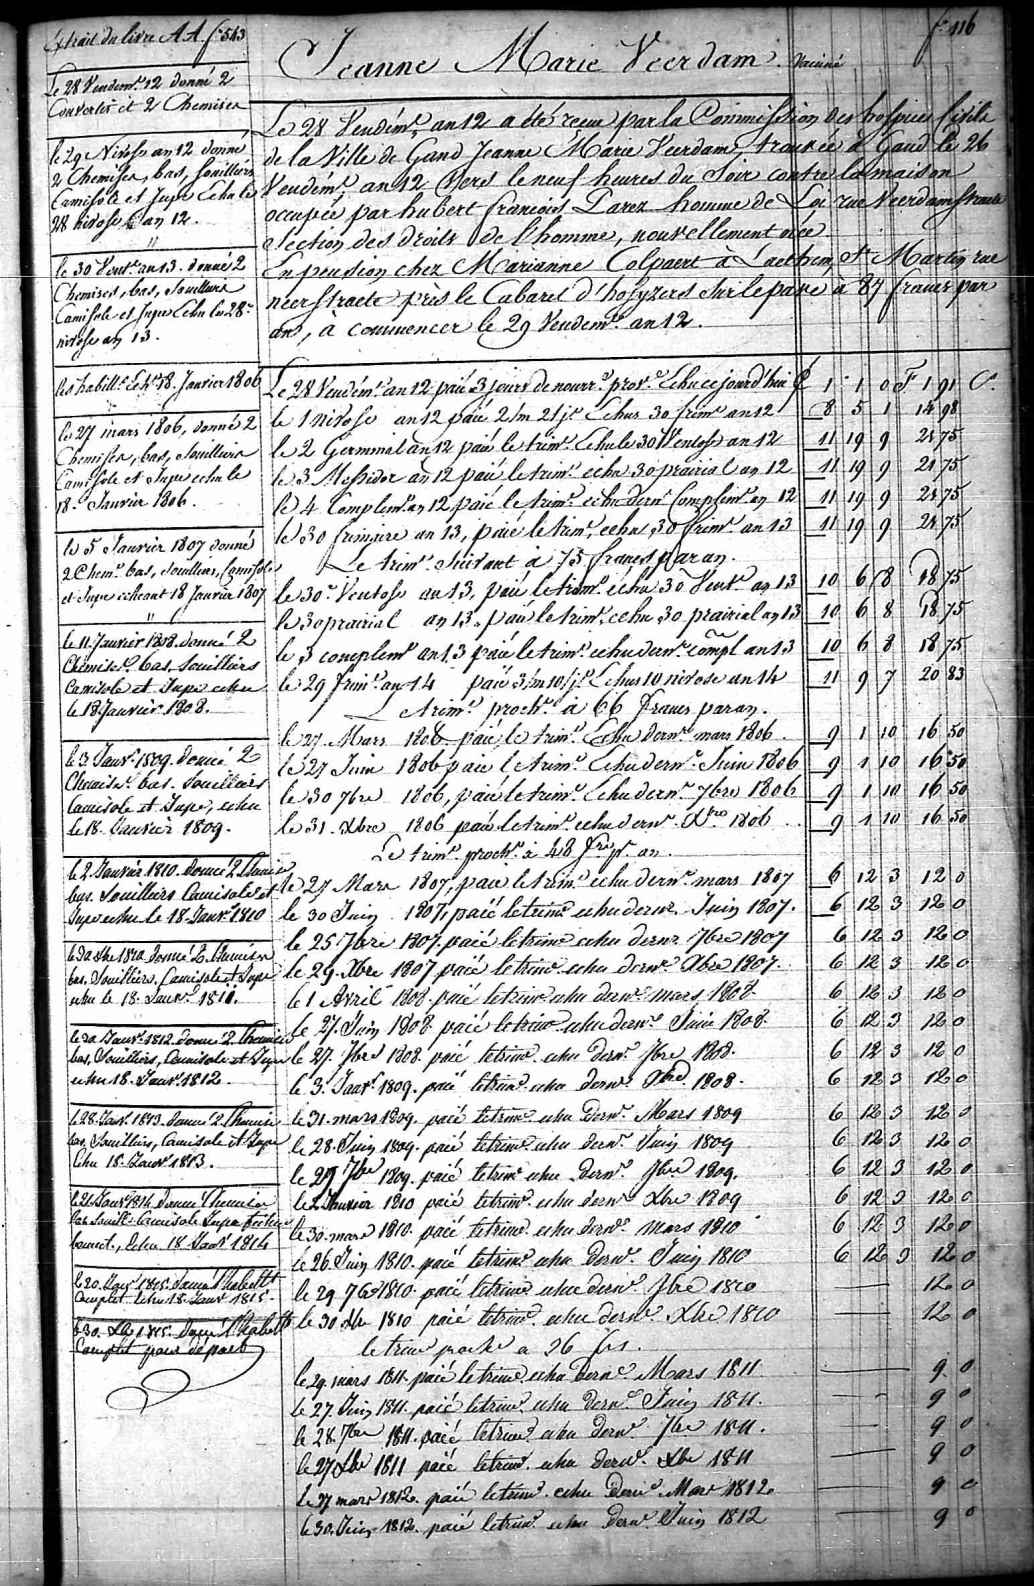 Extrait du livre AA. f° 543
Le 28 Vendem.re 12 donné 2
Couvertes et 2 Chemises
le 29 Nivose an 12 donné
2 Chemises, bas, souilliers
Camisole et Jupe Echu le
28 nivose an 12.
"
le 30 Vent.e an 13. donné 2
Chemises, bas, Souilliers
Camisole et Jupe Echu le 28
nivose an 13.
les habill.ts Echu 18. Janvier 1806
le 27 mars 1806, donné 2
Chemises, bas, Souilliers
Camisole et Jupe echu le
18. Janvier 1806.
le 5 Janvier 1807 donné
2 Chem.s bas, Souilliers, Camisole
et Jupe echeant 18 Janvier 1807
"
le 11. Janvier 1808. donné 2
Chemises. bas, Souilliers
Camisole et Jupe echu
le 18 Janvier 1808.
le 3 Janv.r 1809. donné 2
Chemises. bas. Souilliers
Camisole et Jupe, echu
le 18. Janvier 1809.
le 2 Janvier 1810. donné 2 Chemises
bas. Souilliers Camisole et
Jupe echu le 18. Janv.r 1810
le 30 Xbre 1810 donné 2. Chemises
bas. Souilliers, Camisole et Jupe
echu le 18. Janv.r 1811.
le 30 Janv.r 1812. donné 2 Chemises
bas, Souilliers, Camisole et Jupe
echu 18. Janv.r 1812.
le 28. Janv.r 1813. donné 2 Chemises
bas, Souilliers, Camisole et Jupe
Echu 18. Janv.r 1813.
le 21 Janv.r 1814 donné Chemises
bas Souill.s Camisole Jupe
bonnet, Echu 18 Janv.r 1814
le 20. Janv.r 1815. donné l'habill.t
Complet Echu 18. Janv.r 1815.
le 30. Xbre 1815. donné l'habill.t
Complet pour départ
f° 116
Jeanne Marie Veerdam. Vacciné
Le 28 Vendém.re an 12 a été recue par la Commission des hospices Civils
de la Ville de Gand Jeanne Marie Veerdam, trouvée à Gand le 26
Vendém.re an 12 vers le neuf heures du Soir contre la maison
occupée par hubert francois Parez homme de Loi rue Veerdamstraete
Section des droits de l'homme, nouvellement née.
En pension chez Marianne Colpaert à Laethem, St Martin rue
neerstraete près le Cabaret d'hofyzers sur le pavé à 87 francs par
an, à commencer le 29 Vendem.re an 12.
Le 28 Vendém.re an 12 paié 3 jours de nourr.e prov.e Echu ce jourd'hui £ 1 1 0 F 1 91 C.s
le 1 Nivose an 12 paié 2/m 21 j.s Echus 30 frim.e an 12 8 5 1 14 98
le 2 Germinal an 12 paié le trim.e Echu le 30 Ventose an 12 11 19 9 21 75
le 3 Messidor an 12 paié le trim.e echu 30 prairial an 12 11 19 9 21 75
le 4 Complem.re an 12 paié le trim.e echu dern.r Complem.re an 12 11 19 9 21 75
le 30 frimaire an 13, paié le trim.e echu 30 frim.e an 13 11 19 9 21 75
Le trim.e suivant à 75 francs par an.
le 30 Ventose an 13, paié le trim.e echu 30 Vent.e an 13 10 6 8 18 75
le 30 prairial an 13, paié le trim.e echu 30 prairial an 13 10 6 8 18 75
le 3 complem.re an 13 paié le trim.e echu dern.r compl an 13 10 6 8 18 75
le 29 frim.e an 14 paié 3/m 10/j.s Echus 10 nivose an 14 11 9 7 20 83
Le trim.e proch.n à 66 francs par an.
le 27 Mars 1806 paié, le trim.e Echu dern.r mars 1806. 9 1 10 16 50
le 27 Juin 1806 paié le trim.e Echu dern.r Juin 1806 9 1 10 16 50
le 30 7bre 1806, paié le trim.e Echu dern.r 7bre 1806 9 1 10 16 50
le 31. Xbre 1806 paié le trim.e echu dern.r Xbre 1806 9 1 10 16 50
Le trim.e proch.n à 48 fr.s p.r an.
le 27 Mars 1807, paié le trim.e echu dern.r mars 1807 6 12 3 12 0
le 30 Juin 1807, paié le trim.e echu dern.r Juin 1807. 6 12 3 12 0
le 25 7bre 1807. paié le trim.e echu dern.r 7bre 1807 6 12 3 12 0
le 29. Xbre 1807 paié le trim.e echu dern.r Xbre 1807. 6 12 3 12 0
le 1 Avril 1808. paié le trim.e echu dern.r mars 1808 6 12 3 12 0
le 27. Juin 1808. paié le trim.e echu dern.r Juin 1808. 6 12 3 12 0
le 27. 7bre 1808. paié le trim.e echu dern.r 7bre 1808. 6 12 3 12 0
le 3. Janv.r 1809. paié le trim.e echu dern.r Xbre 1808. 6 12 3 12 0
le 31. mars 1809. paié le trim.e echu dern.r Mars 1809 6 12 3 12 0
le 28. Juin 1809. paié le trim.e echu dern.r Juin 1809 6 12 3 12 0
le 29 7bre 1809. paié le trim.e echu dern.r 7bre 1809. 6 12 3 12 0
le 2 Janvier 1810 paié le trim.e echu dern.r Xbre 1809 6 12 3 12 0
le 30. mars 1810. paié le trim.e echu dern.r mars 1810 6 12 3 12 0
le 26. Juin 1810. paié le trim.e echu dern.r Juin 1810 6 12 3 12 0
le 29 7bre 1810. paié le trim.e echu dern.r 7bre 1810 — 12 0
le 30 Xbre 1810 paié le trim.e echu dern.r Xbre 1810 — 12 0
le trim proch.n a 36 fr.s.
le 29. mars 1811. paié le trim.e echu dern.r Mars 1811 — 9 0
le 27. Juin 1811. paié le trim.e echu dern.r Juin 1811. — 9 0
le 28. 7bre 1811. paié le trim.e echu dern.r 7bre 1811. — 9 0
le 27 Xbre 1811 paié le trim.e echu dern.r Xbre 1811 — 9 0
le 27 mars 1812. paié le trim.e echu dern.r Mars 1812. — 9 0
le 30. Juin 1812. paié le trim.e echu dern.r Juin 1812 — 9 0